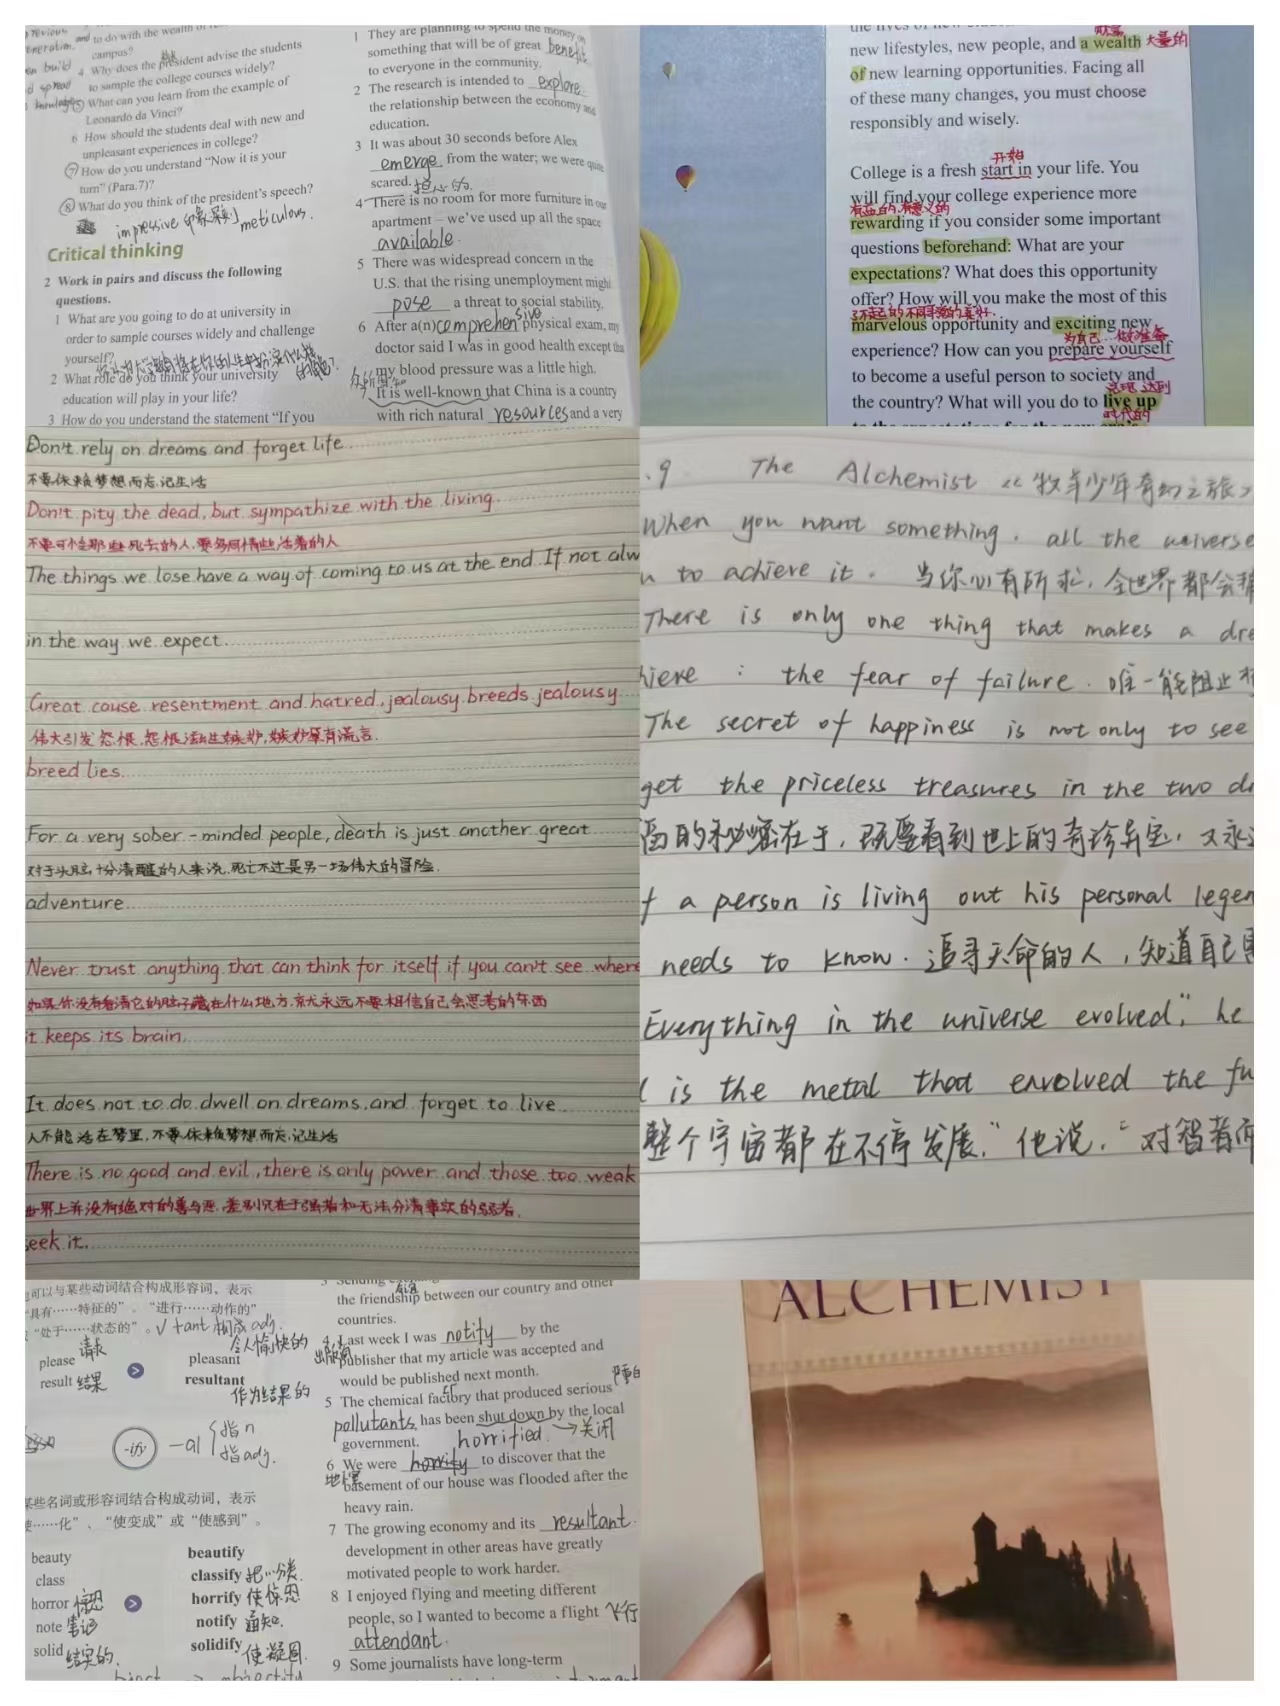 to do with the wealth of
campus?
4 Why does the president advise the students
to sample the college courses widely?
⑤ What can you learn from the example of
Leonardo da Vinci?
6 How should the students deal with new and
unpleasant experiences in college?
⑦ How do you understand “Now it is your
turn” (Para.7)?
⑧ What do you think of the president’s speech?
impressive 印象深刻 meticulous.
Critical thinking
2 Work in pairs and discuss the following
questions.
1 What are you going to do at university in
order to sample courses widely and challenge
yourself?
2 What role do you think your university
education will play in your life?
3 How do you understand the statement “If you
1 They are planning to spend the money on
something that will be of great benefit
to everyone in the community.
2 The research is intended to explore
the relationship between the economy and
education.
3 It was about 30 seconds before Alex
emerge from the water; we were quite
scared. 担心的.
4 There is no room for more furniture in our
apartment – we’ve used up all the space
available.
5 There was widespread concern in the
U.S. that the rising unemployment might
pose a threat to social stability.
6 After a(n) comprehensive physical exam, my
doctor said I was in good health except that
my blood pressure was a little high.
7 It is well-known that China is a country
with rich natural resources and a very
new lifestyles, new people, and a wealth 大量的
of new learning opportunities. Facing all
of these many changes, you must choose
responsibly and wisely.
开始
College is a fresh start in your life. You
will find your college experience more
rewarding if you consider some important
questions beforehand: What are your
expectations? What does this opportunity
offer? How will you make the most of this
marvelous opportunity and exciting new
为自己...做准备
experience? How can you prepare yourself
to become a useful person to society and
达到
the country? What will you do to live up
时代的
Don't rely on dreams and forget life
不要依赖梦想而忘记生活
Don't pity the dead, but sympathize with the living.
不要可怜那些死去的人,要多同情些活着的人
The things we lose have a way of coming to us at the end If not alw
in the way we expect.
Great cause resentment and hatred, jealousy breeds jealousy
breed lies.
For a very sober-minded people, death is just another great
对于头脑十分清醒的人来说,死亡不过是另一场伟大的冒险.
adventure
Never trust anything that can think for itself if you can't see where
如果你没有看清它的脑子藏在什么地方,就永远不要相信自己会思考的东西
it keeps its brain.
It does not to do dwell on dreams, and forget to live
人不能活在梦里,不要依赖梦想而忘记生活
There is no good and evil, there is only power and those too weak
世界上并没有绝对的善与恶,差别只在于强者和无法分清事实的弱者.
seek it.
.9 The Alchemist 《牧羊少年奇幻之旅》
When you want something, all the universe
to achieve it. 当你心有所求,全世界都会
There is only one thing that makes a dre
hieve : the fear of failure. 唯一能阻止
The secret of happiness is not only to see
get the priceless treasures in the two
的秘密在于,既要看到世上的奇珍异宝,又永
f a person is living out his personal legen
needs to know. 追寻天命的人,知道自己
Everything in the universe evolved," he
is the metal that envolved the fu
整个宇宙都在不停发展." 他说,"对智者而
可以与某些动词结合构成形容词,表示
“具有……特征的”、“进行……动作的”
“处于……状态的”。√ tant 构成 adj.
please 请求 pleasant 令人愉快的
result 结果 resultant
作为结果的
-ify -al 指n
指adj.
某些名词或形容词结合构成动词,表示
……化”、“使变成”或“使感到”。
beauty beautify
class classify 把…分类.
horror 惊恐 horrify 使惊恐
note 笔记 notify 通知.
solid 结实的. solidify 使凝固.
the friendship between our country and other
countries.
4 Last week I was notify by the
publisher that my article was accepted and
would be published next month.
5 The chemical factory that produced serious
pollutants has been shut down by the local
government. horrified. →关闭
6 We were horrify to discover that the
basement of our house was flooded after the
heavy rain.
7 The growing economy and its resultant
development in other areas have greatly
motivated people to work harder.
8 I enjoyed flying and meeting different
people, so I wanted to become a flight 飞行
attendant.
9 Some journalists have long-term
ALCHEMIST